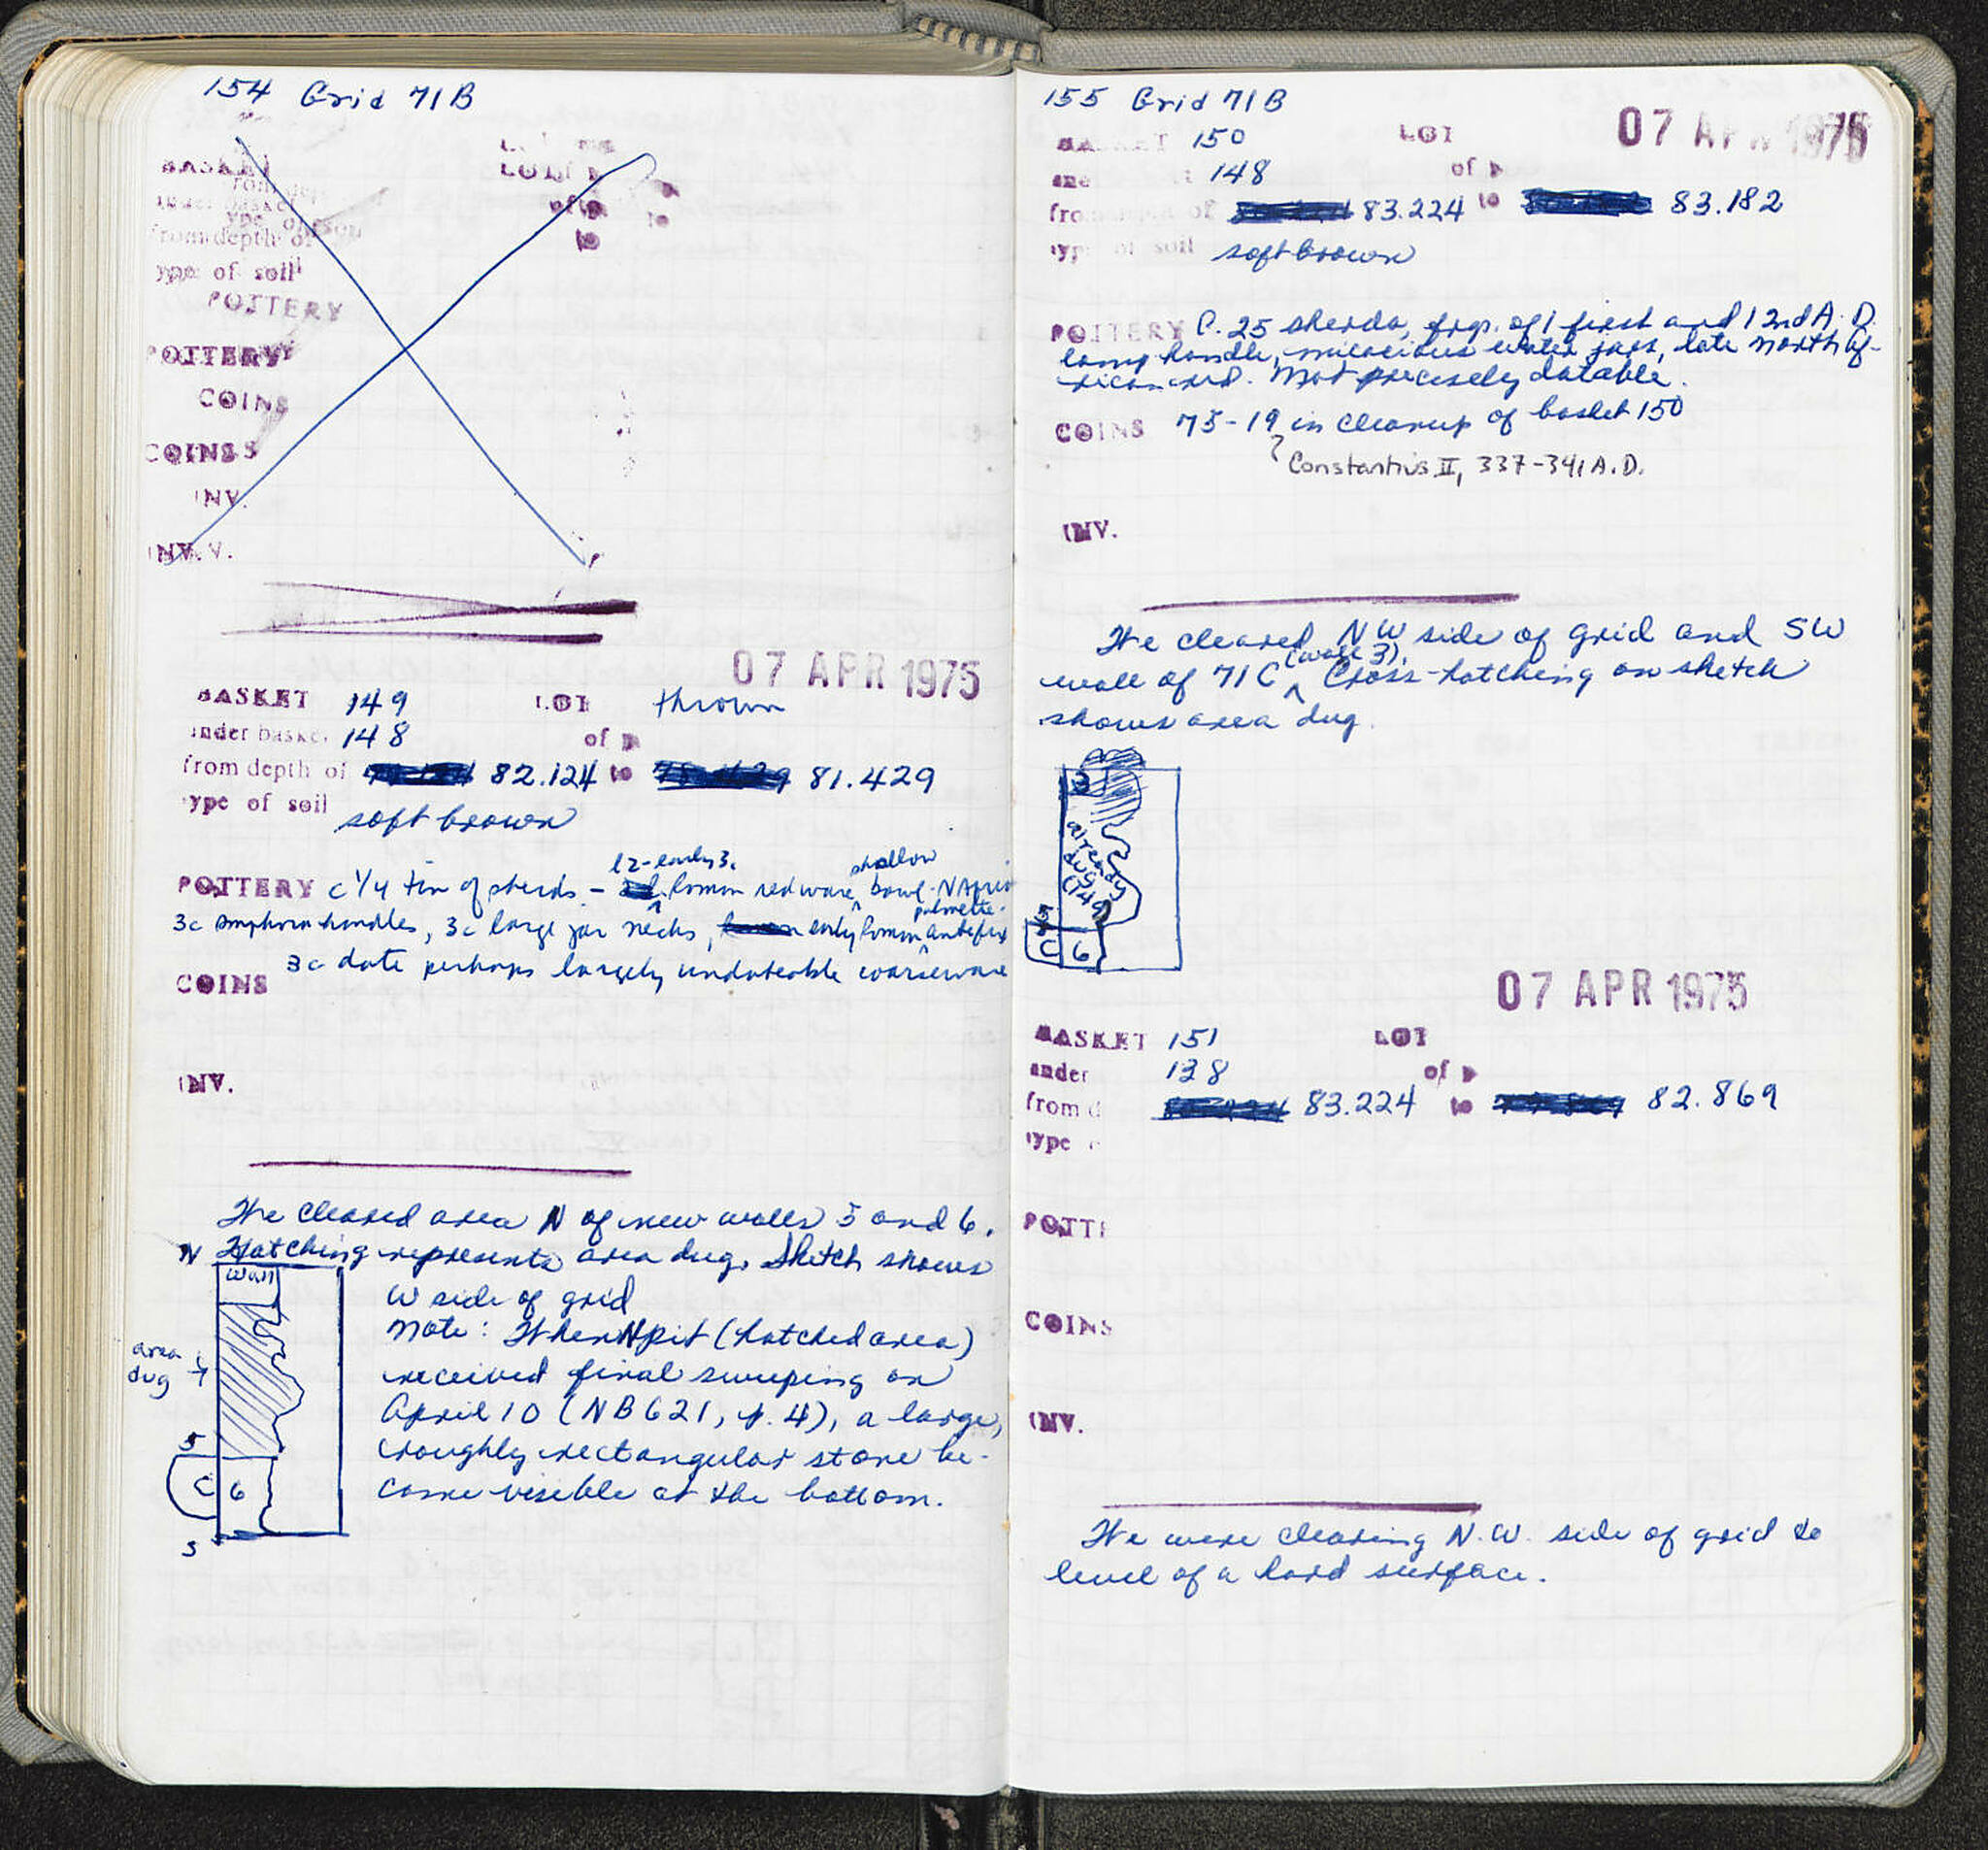 154 Grid 71B
BASKET LOT
under basket of
from depth of to
type of soil
POTTERY
POTTERY
COINS
COINS
INV.
INV.
07 APR 1975
BASKET 149 LOT thrown
under basket 148 of
from depth of 82.124 to 81.429
type of soil
soft brown
l2-early 3c shallow
POTTERY c 1/4 tin of sherds - Roman red ware bowl - N Afric
palmette
3c amphora handles, 3c large jar necks, early Roman antefix
3c date perhaps largely undateable coarseware
COINS
INV.
We cleared area N of new walls 5 and 6.
N Hatching represents area dug. Sketch shows
wall
W side of grid
Note: When N pit (hatched area)
area
dug
received final sweeping on
April 10 (NB 621, p. 4), a large,
roughly rectangular stone be-
came visible at the bottom.
5
C 6
S
155 Grid 71B
07 APR 1975
BASKET 150 LOT
under 148 of
from depth of 83.224 to 83.182
type of soil soft brown
POTTERY C. 25 sherds, frgs. of 1 first and 1 2nd A.D.
lamp handle, micacious water jars, late North Af-
rican red. Not precisely datable.
COINS 75-19 in cleanup of basket 150
Constantius II, 337-341 A.D.
INV.
We cleared NW side of grid and SW
wall of 71C (wall 3). Cross-hatching on sketch
shows area dug.
3
already
dug
(149)
5
C 6
07 APR 1975
BASKET 151 LOT
under 138 of
from d 83.224 to 82.869
type
POTTE
COINS
INV.
We were clearing N.W. side of grid to
level of a hard surface.